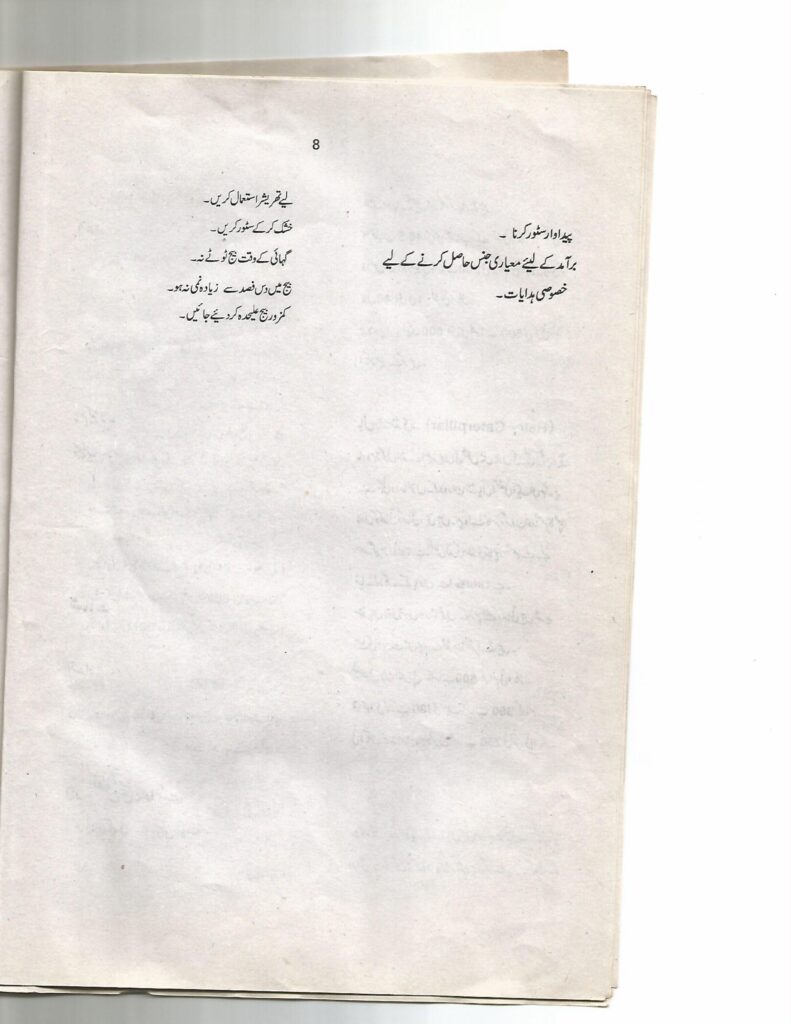 8
لیے تھریشر استعمال کریں۔
پیداوار سٹور کرنا ۔
خشک کر کے سٹور کریں۔
برآمد کے لیئے معیاری جنس حاصل کرنے کے لیے
گہائی کے وقت بیج ٹوٹے نہ۔
خصوصی ہدایات۔
بیج میں دس فصد سے زیادہ نمی نہ ہو۔
کمزور بیج علیحدہ کر دیئے جائیں۔